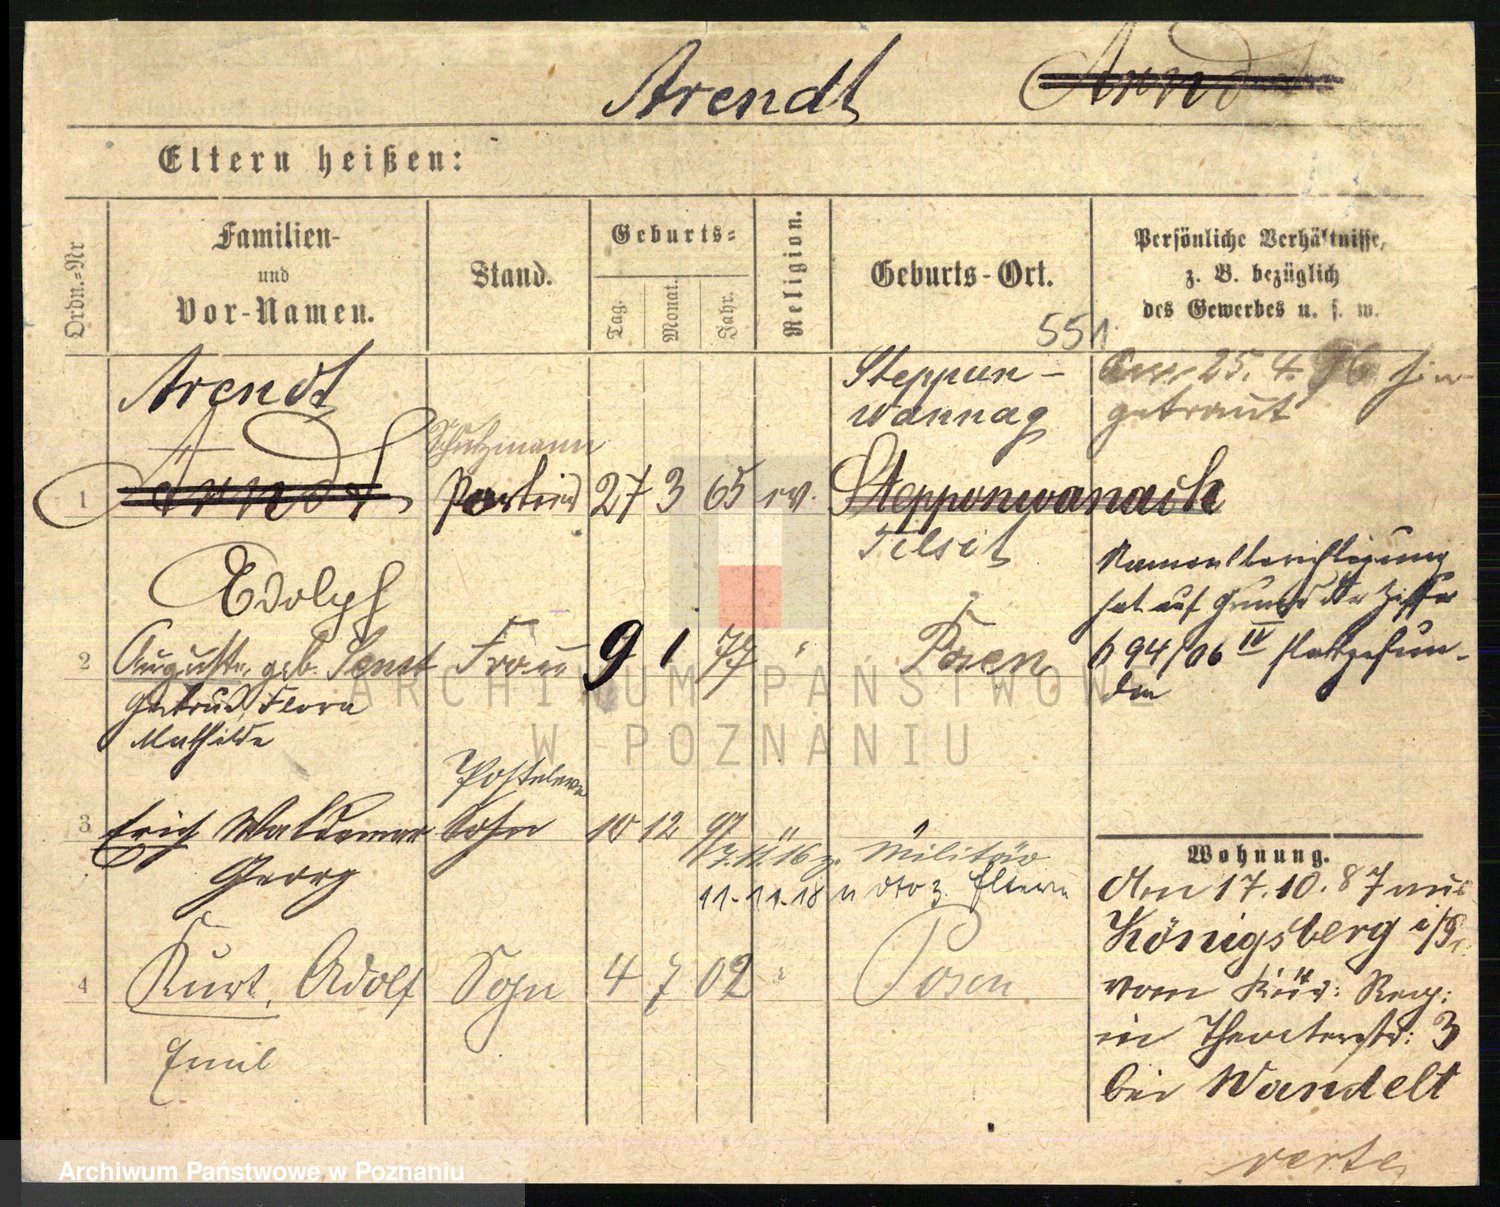 Arendt Arndt
Eltern heißen:
Ordn.=Nr
Familien-
und
Vor-Namen.
Stand.
Geburts=
Tag.
Monat.
Jahr.
Religion.
Geburts-Ort.
Persönliche Verhältnisse,
z. B. bezüglich
des Gewerbes u. s. w.
551
Arendt
Steppon-
wannag
25. 4. 96 hier
getraut
Schutzmann
1 Arndt 27 3 65 ev. Stepponwanack
Tilsit
Adolph
Namensberichtigung
hat auf Grund der Ziffer
694/06 IV stattgefun-
den
2 Auguste, geb. Frau 9 1 77 " Posen
Gertrud, Flora
Mathilde
Posteleve
3 Erich Waldemar Sohn 10 12 97 " "
Georg
7.11.16 z. Militär
11-11-18 v dto z. Eltern
4 Kurt, Adolf Sohn 4 7 02 " Posen
Emil
Wohnung.
Am 17.10.87 aus
Königsberg i/Pr.
vom Kür: Reg:
in Theaterstr: 3
bei Wandelt
verte
ARCHIWUM PAŃSTWOWE
W POZNANIU
Archiwum Państwowe w Poznaniu